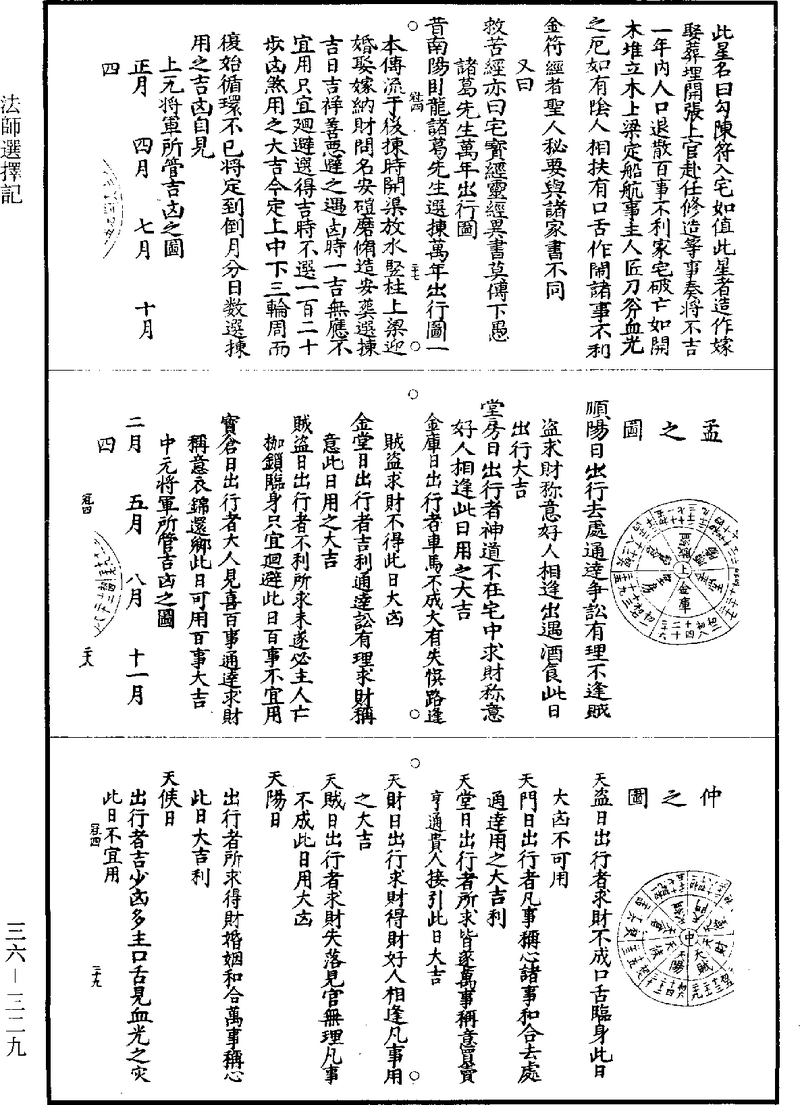 此星名曰勾陳符入宅如值此星者造作嫁
娶葬埋開張上官赴任修造等事奏將不吉
一年內人口退散百事不利家宅破亡如開
木堆立木上梁定船航事主人匠刀斧血光
之厄如有陰人相扶有口舌作鬧諸事不利
金符經者聖人秘要與諸家書不同
又曰
救苦經亦曰宅寶經靈經異書莫傳下愚
諸葛先生萬年出行圖
昔南陽卧龍諸葛先生選揀萬年出行圖一
本傳流于後揀時開渠放水竪柱上梁迎
婚娶嫁納財問名安磑磨脩造安葬選揀
吉日吉祥善惡避之遇凶時一吉無應不
宜用只宜廻避選得吉時不選一百二十
步凶煞用之大吉今定上中下三輪周而
復始循環不已將定到倒月分日数選揀
用之吉凶自見
上元将軍所管吉凶之圖
正月 四月 七月 十月
四
孟之圖
順陽日出行去處通達爭訟有理不逢賊
盜求財称意好人相逢出遇酒食此日
出行大吉
堂房日出行者神道不在宅中求財称意
好人相逢此日用之大吉
金庫日出行者車馬不成大有失悞路逢
賊盜求財不得此日大凶
金堂日出行者吉利通達訟有理求財稱
意此日用之大吉
賊盜日出行者不利所求未遂必主人亡
枷鎖臨身只宜廻避此日百事不宜用
寶倉日出行者大人見喜百事通達求財
稱意衣錦還鄉此日可用百事大吉
中元将軍所管吉凶之圖
二月 五月 八月 十一月
四
仲之圖
天盜日出行者求財不成口舌臨身此日
大凶不可用
天門日出行者凡事稱心諸事和合去處
通達用之大吉利
天堂日出行者所求皆遂萬事稱意買賣
亨通貴人接引此日大吉
天財日出行求財得財好人相逢凡事用
之大吉
天賊日出行者求財失落見官無理凡事
不成此日用大凶
天陽日
出行者所求得財婚姻和合萬事稱心
此日大吉利
天候日
出行者吉少凶多主口舌見血光之灾
此日不宜用
法師選擇記
三六—三二九